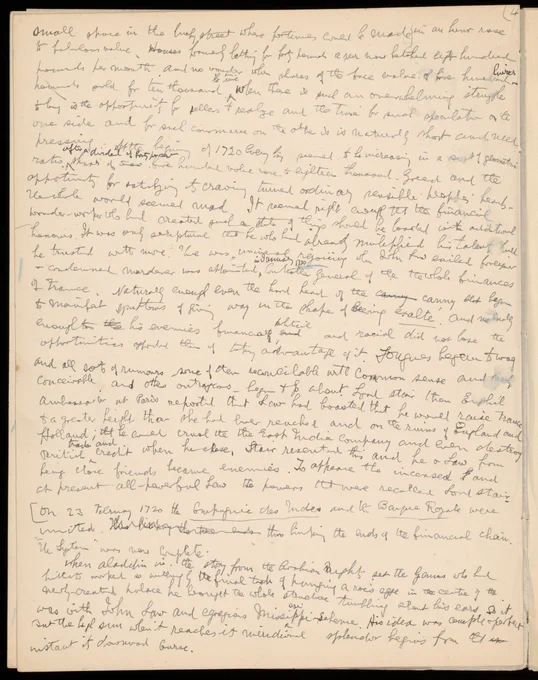 (4
small shore in the busy street where fortunes could be made in an hour rose
to fabulous value. Houses formerly letting for forty pounds a year now fetched eight hundred
pounds per month and no wonder when places of the face value of five hundred livres
sold for ten thousand. When there is such an overwhelming struggle
to buy is the opportunity for sellers to realize and the time for such speculation on the
one side and for such commerce on the other is naturally short and need
pressing. At the beginning of 1720 everything seemed to be increasing in a sort of geometrical
ratio, after a dividend of forty per cent shares of five hundred value rose to eighteen thousand. Greed and the
opportunity for satisfying the craving turned ordinary sensible people's heads.
The whole world seemed mad. It seemed right enough that the financial
wonder-worker who had created such a state of things should be loaded with additional
honours. It was only scriptural that he who had already multiplied his talents should
be trusted with more. He was
condemned murderer was appointed in January 1720 Controller General of the whole finances
of France. Naturally enough even the hard head of the canny Scot began
to manifest symptoms of giving way in the shape of being exalté. And naturally
enough his enemies financial, political and racial did not lose the
opportunities afforded them of taking advantage of it. Tongues began to wag
and all sorts of rumours some of them irreconcilable with common sense and
conceivable, and others outrageous began to be about. Lord Stair then English
Ambassador at Paris reported that Law had boasted that he would raise France
to a greater height than she had ever reached and on the ruins of England and
Holland; that he could crush the East India Company and even destroy
British trade and credit when he chose. Stair resented this and he & Law from
being close friends became enemies. To appease the incensed and
at present all-powerful Law the powers that were recalled Lord Stair.
[On 23 February 1720 the Compagnie des Indes and the Banque Royale were
united. thus linking the ends of the financial chain.
"The System" was now complete.
When Aladdin in the story from the Arabian Nights set the Genius who had
hitherto worked so willingly the final task of hanging a roc's egg in the centre of the
newly-created palace he brought the whole structure tumbling about his ears. So it
was with John Law and Mississippi scheme. His idea was complete & perfect
But the high sun when it reaches its meridional splendour begins from that
instant its downward course.